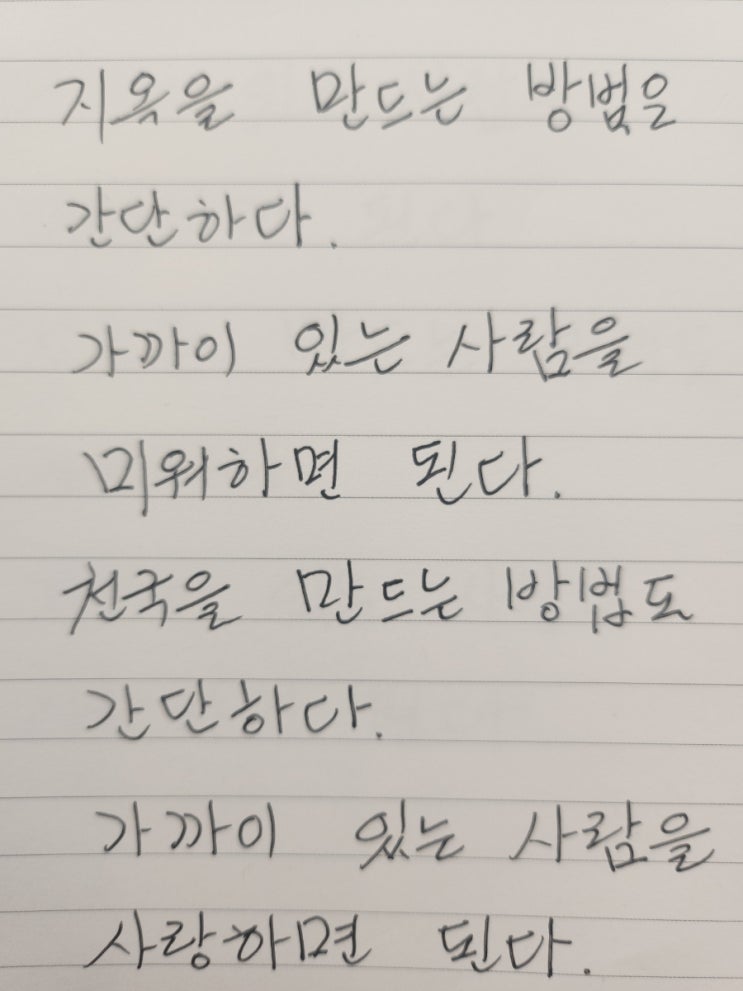 지옥을 만드는 방법은
간단하다.
가까이 있는 사람을
미워하면 된다.
천국을 만드는 방법도
간단하다.
가까이 있는 사람을
사랑하면 된다.